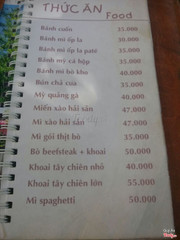 THỨC ĂN
Food
Bánh cuốn 35.000
Bánh mì ốp la 30.000
Bánh mì ốp la pate 35.000
Bánh mỳ cá hộp 35.000
Bánh mì bò kho 40.000
Bún chả cua 35.000
Mỳ quảng gà 40.000
Miến xào hải sản 47.000
Mì xào hải sản 47.000
Mì gói thịt bò 35.000
Bò beefsteak + khoai 50.000
Khoai tây chiên nhỏ 40.000
Khoai tây chiên lớn 55.000
Mì spaghetti 50.000